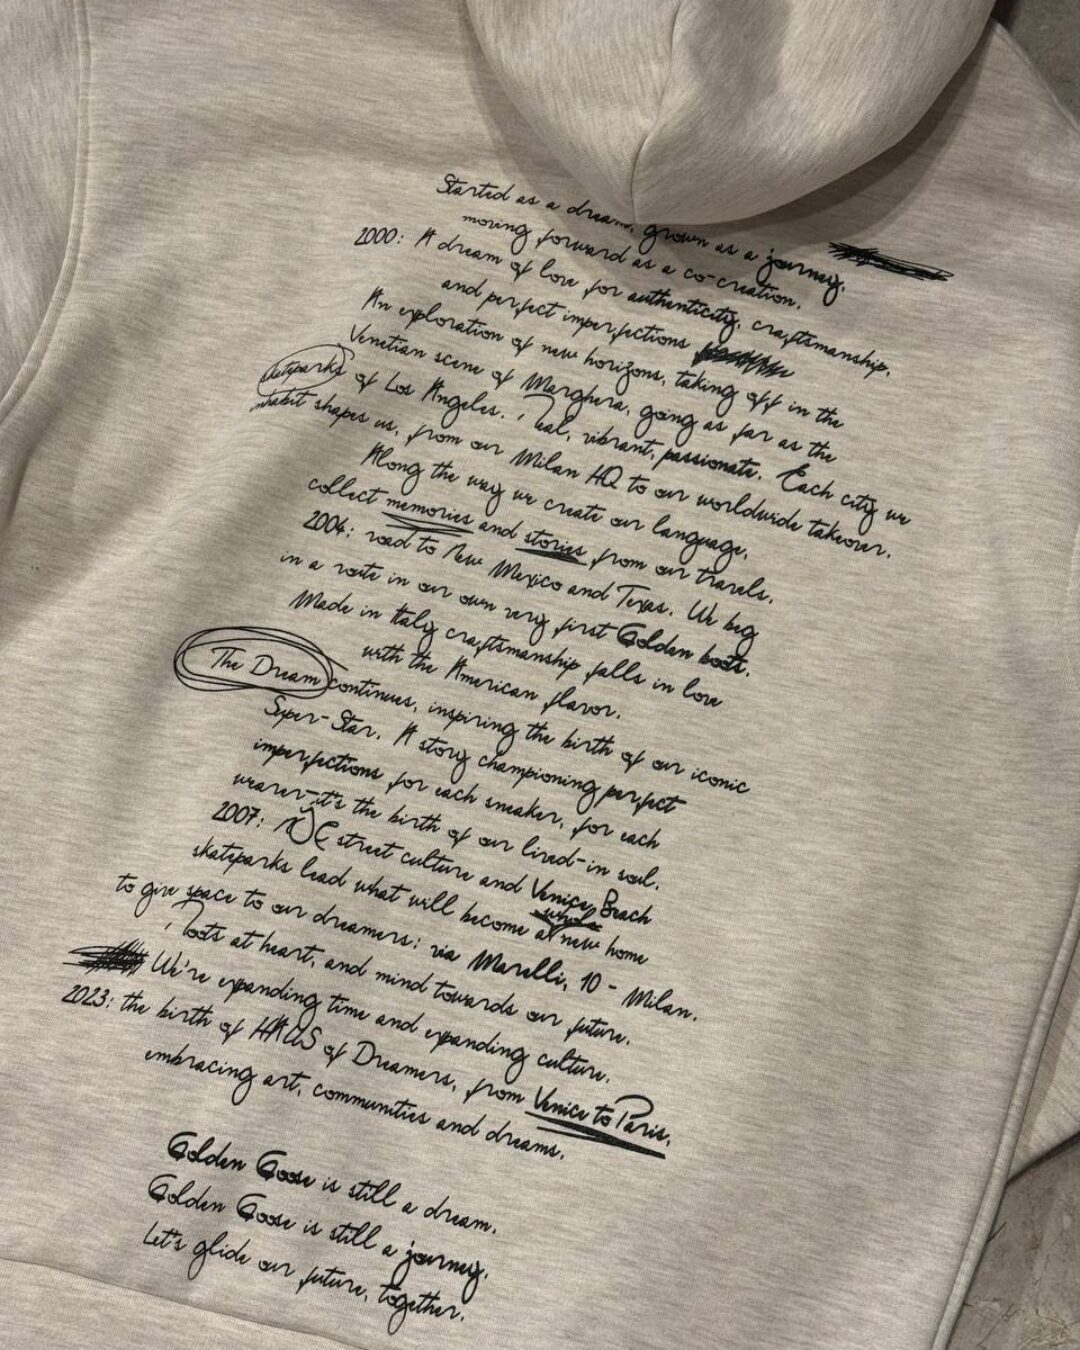 Started as a dream, grown as a journey,
moving forward as a co-creation.
2000: A dream of love for authenticity, craftsmanship,
and perfect imperfections
An exploration of new horizons, taking off in the
Venetian scene of Marghera, going as far as the
skateparks of Los Angeles. Real, vibrant, passionate. Each city we
inhabit shapes us, from our Milan HQ to our worldwide takeover.
Along the way we create our language,
collect memories and stories from our travels.
2004: road to New Mexico and Texas. We beg
in a route in our own very first Golden boots.
Made in Italy craftsmanship falls in love
with the American flavor.
The Dream continues, inspiring the birth of our iconic
Super-Star. A story championing perfect
imperfections, for each sneaker, for each
wearer-it's the birth of our lived-in soul.
2007: street culture and Venice Beach
skateparks lead what will become a whole new home
to give space to our dreamers: via Morelli, 10 - Milan.
Roots at heart, and mind towards our future.
We're expanding time and expanding culture.
2023: the birth of HAUS of Dreamers, from Venice to Paris,
embracing art, communities and dreams.
Golden Goose is still a dream.
Golden Goose is still a journey.
Let's glide our future, together.